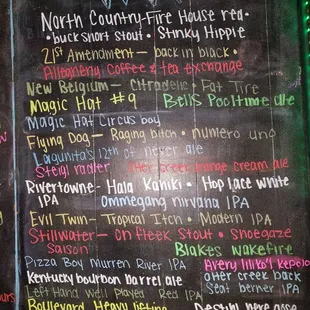 North Country - Fire House red •
• buck short stout • Stinky Hippie
21st Amendment - back in black •
Allegheny Coffee & tea exchange
New Belgium - Citradelic • Fat Tire
Magic Hat #9 Bells Pooltime ale
Magic Hat Circus boy
Flying Dog - Raging bitch • numero uno
Lagunitas 12th of never ale
Steigl radler otter creek orange cream ale
Rivertowne - Hala Kahiki • Hop lace white
IPA Ommegang nirvana IPA
Evil Twin - Tropical Itch • Modern IPA
Stillwater - on fleek stout • Shoegaze
Saison Blakes wakefire
Pizza Boy Murren River IPA Avery liliko'i kepolo
Kentucky bourbon barrel ale otter creek back
Left Hand Well Played Red IPA Seat berner IPA
Boulevard Heavy lifting Destihl here gose